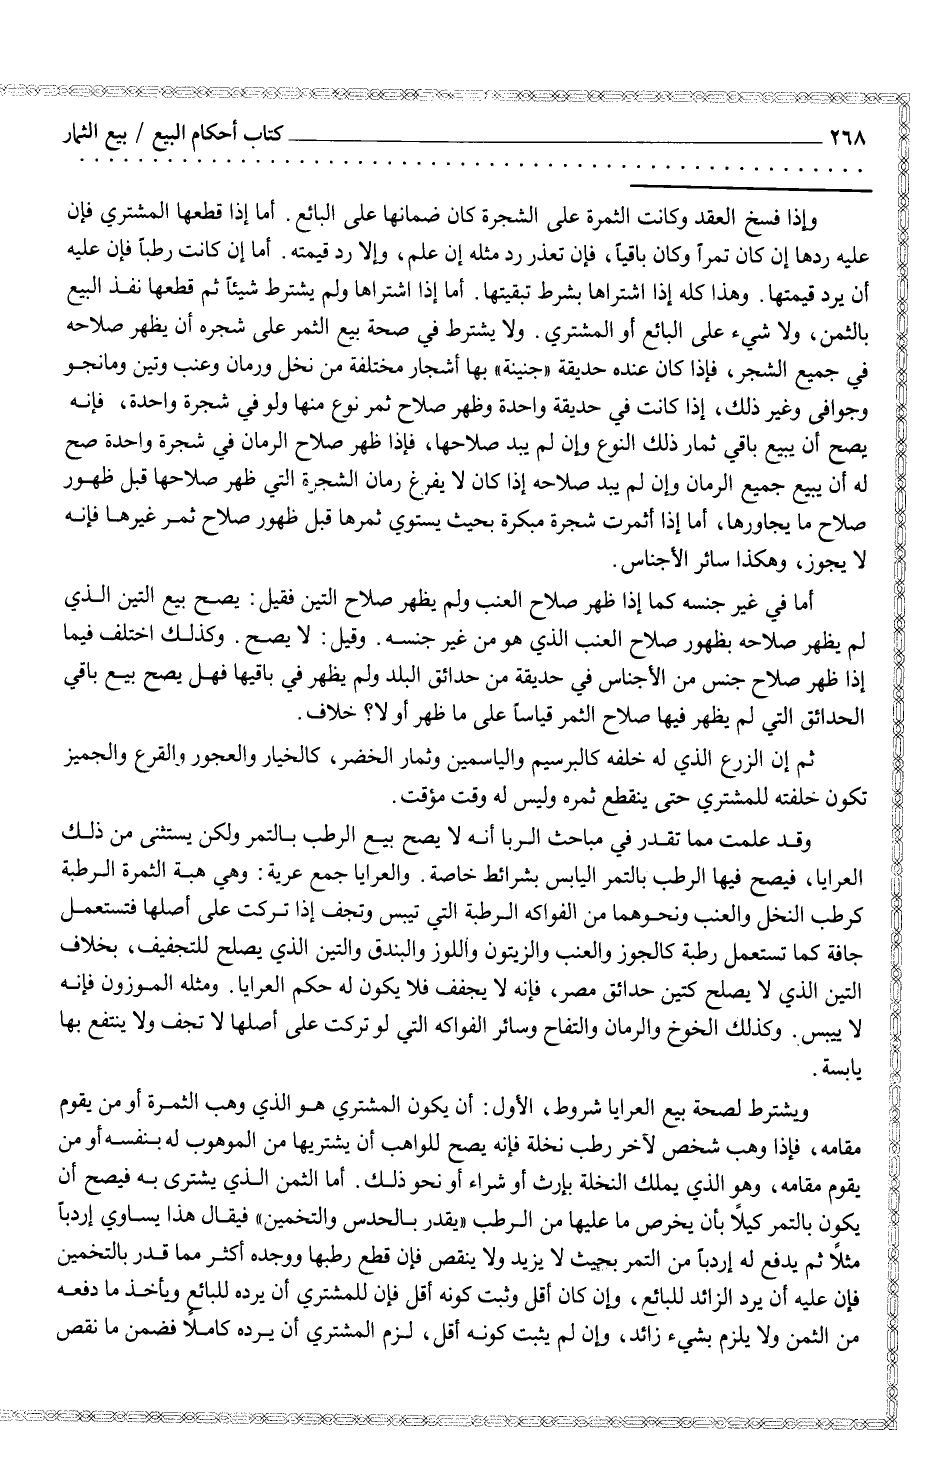 ٢٦٨ ــــــــــــــــــــ كتاب أحكام البيع / بيع الثمار
وإذا فسخ العقد وكانت الثمرة على الشجرة كان ضمانها على البائع. أما إذا قطعها المشتري فإن
عليه ردها إن كان تمراً وكان باقياً، فإن تعذر رد مثله إن علم، وإلا رد قيمته. أما إن كانت رطباً فإن عليه
أن يرد قيمتها. وهذا كله إذا اشتراها بشرط تبقيتها. أما إذا اشتراها ولم يشترط شيئاً ثم قطعها نفذ البيع
بالثمن، ولا شيء على البائع أو المشتري. ولا يشترط في صحة بيع الثمر على شجره أن يظهر صلاحه
في جميع الشجر، فإذا كان عنده حديقة «جنينة» بها أشجار مختلفة من نخل ورمان وعنب وتين ومانجو
وجوافى وغير ذلك، إذا كانت في حديقة واحدة وظهر صلاح ثمر نوع منها ولو في شجرة واحدة، فإنه
يصح أن يبيع باقي ثمار ذلك النوع وإن لم يبد صلاحها، فإذا ظهر صلاح الرمان في شجرة واحدة صح
له أن يبيع جميع الرمان وإن لم يبد صلاحه إذا كان لا يفرغ رمان الشجرة التي ظهر صلاحها قبل ظهور
صلاح ما يجاورها، أما إذا أثمرت شجرة مبكرة بحيث يستوي ثمرها قبل ظهور صلاح ثمر غيرها فإنه
لا يجوز، وهكذا سائر الأجناس.
أما في غير جنسه كما إذا ظهر صلاح العنب ولم يظهر صلاح التين فقيل: يصح بيع التين الذي
لم يظهر صلاحه بظهور صلاح العنب الذي هو من غير جنسه. وقيل: لا يصح. وكذلك اختلف فيما
إذا ظهر صلاح جنس من الأجناس في حديقة من حدائق البلد ولم يظهر في باقيها فهل يصح بيع باقي
الحدائق التي لم يظهر فيها صلاح الثمر قياساً على ما ظهر أو لا؟ خلاف.
ثم إن الزرع الذي له خلفه كالبرسيم والياسمين وثمار الخضر، كالخيار والعجور والقرع والجميز
تكون خلفته للمشتري حتى ينقطع ثمره وليس له وقت مؤقت.
وقد علمت مما تقدر في مباحث الربا أنه لا يصح بيع الرطب بالتمر ولكن يستثنى من ذلك
العرايا، فيصح فيها الرطب بالتمر اليابس بشرائط خاصة. والعرايا جمع عرية: وهي هبة الثمرة الرطبة
كرطب النخل والعنب ونحوهما من الفواكه الرطبة التي تيبس وتجف إذا تركت على أصلها فتستعمل
جافة كما تستعمل رطبة كالجوز والعنب والزيتون واللوز والبندق والتين الذي يصلح للتجفيف، بخلاف
التين الذي لا يصلح كتين حدائق مصر، فإنه لا يجفف فلا يكون له حكم العرايا. ومثله الموزون فإنه
لا ييبس. وكذلك الخوخ والرمان والتفاح وسائر الفواكه التي لو تركت على أصلها لا تجف ولا ينتفع بها
يابسة.
ويشترط لصحة بيع العرايا شروط، الأول: أن يكون المشتري هو الذي وهب الثمرة أو من يقوم
مقامه، فإذا وهب شخص لآخر رطب نخلة فإنه يصح للواهب أن يشتريها من الموهوب له بنفسه أو من
يقوم مقامه، وهو الذي يملك النخلة بإرث أو شراء أو نحو ذلك. أما الثمن الذي يشترى به فيصح أن
يكون بالتمر كيلاً بأن يخرص ما عليها من الرطب «يقدر بالحدس والتخمين» فيقال هذا يساوي إردباً
مثلاً ثم يدفع له إردباً من التمر بحيث لا يزيد ولا ينقص فإن قطع رطبها ووجده أكثر مما قدر بالتخمين
فإن عليه أن يرد الزائد للبائع، وإن كان أقل وثبت كونه أقل فإن للمشتري أن يرده للبائع ويأخذ ما دفعه
من الثمن ولا يلزم بشيء زائد، وإن لم يثبت كونه أقل، لزم المشتري أن يرده كاملاً فضمن ما نقص